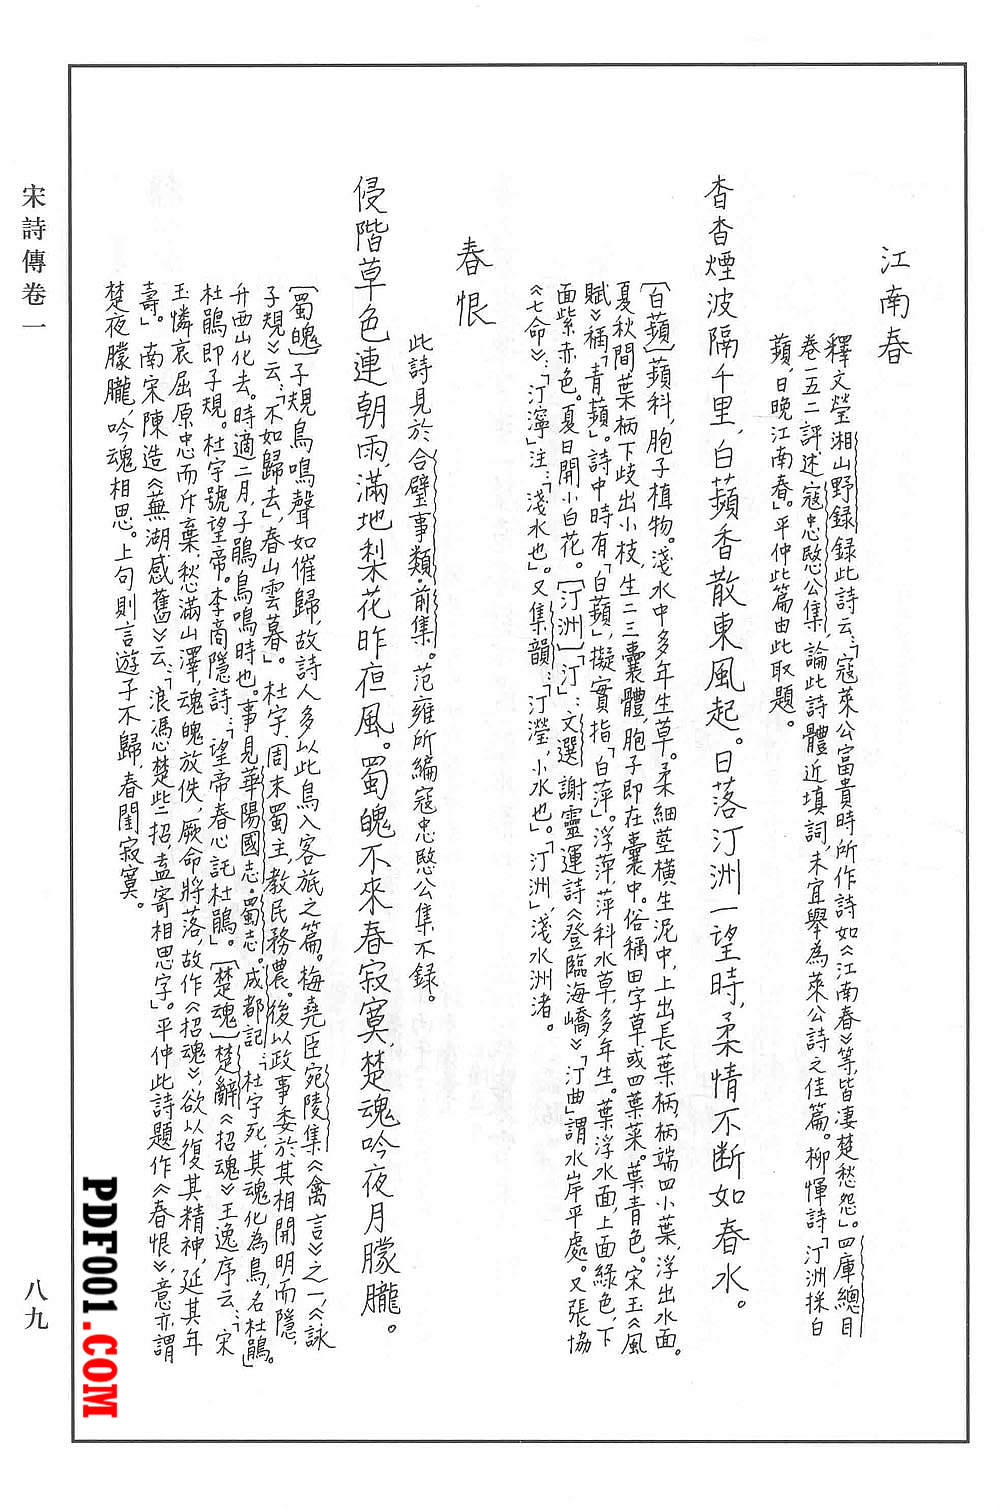 江南春
釋文瑩湘山野錄錄此詩云：「寇萊公富貴時所作詩如《江南春》等，皆凄楚愁怨。」四庫總目
卷一五二評述寇忠愍公集，論此詩體近填詞，未宜舉為萊公詩之佳篇。柳惲詩「汀洲採白
蘋，日晚江南春。」平仲此篇由此取題。
杳杳煙波隔千里，白蘋香散東風起。日落汀洲一望時，柔情不断如春水。
〔白蘋〕蘋科，胞子植物。淺水中多年生草。柔細莖橫生泥中，上出長葉柄，柄端四小葉，浮出水面。
夏秋間葉柄下歧出小枝，生二三囊體，胞子即在囊中。俗稱田字草或四葉菜。葉青色。宋玉《風
賦》稱「青蘋」。詩中時有「白蘋」，擬實指「白萍」。浮萍，萍科水草，多年生。葉浮水面，上面綠色，下
面紫赤色。夏日開小白花。〔汀洲〕「汀」：文選謝靈運詩《登臨海嶠》「汀曲」謂水岸平處。又張協
《七命》：「汀濘」注：「淺水也」。又集韻：「汀瀅，小水也」。「汀洲」，淺水洲渚。
春恨
此詩見於合璧事類·前集。范雍所編寇忠愍公集不錄。
侵階草色連朝雨，滿地梨花昨夜風。蜀魄不來春寂寞，楚魂吟夜月朦朧。
〔蜀魄〕子規鳥鳴聲如催歸，故詩人多以此鳥入客旅之篇。梅堯臣宛陵集《禽言》之一，《詠
子規》云：「不如歸去，春山雲暮」。杜宇，周末蜀主，教民務農。後以政事委於其相開明而隱，
升西山化去。時適二月，子鵑鳥鳴時也。事見華陽國志·蜀志。成都記：「杜宇死，其魂化為鳥，名杜鵑。」
杜鵑即子規。杜宇號望帝。李商隱詩：「望帝春心託杜鵑。」〔楚魂〕楚辭《招魂》王逸序云：「宋
玉憐哀屈原忠而斥棄，愁滿山澤，魂魄放佚，厥命將落，故作《招魂》，欲以復其精神，延其年
壽。」南宋陳造《蕪湖感舊》云：「浪憑楚些招，盍寄相思字」。平仲此詩題作《春恨》，意亦謂
楚夜朦朧，吟魂相思。上句則言遊子不歸，春閨寂寞。
宋詩傳卷一
八九
PDF001.COM